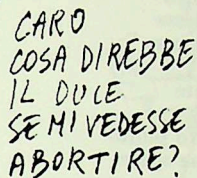 CARO
COSA DIREBBE
IL DUCE
SE MI VEDESSE
ABORTIRE?